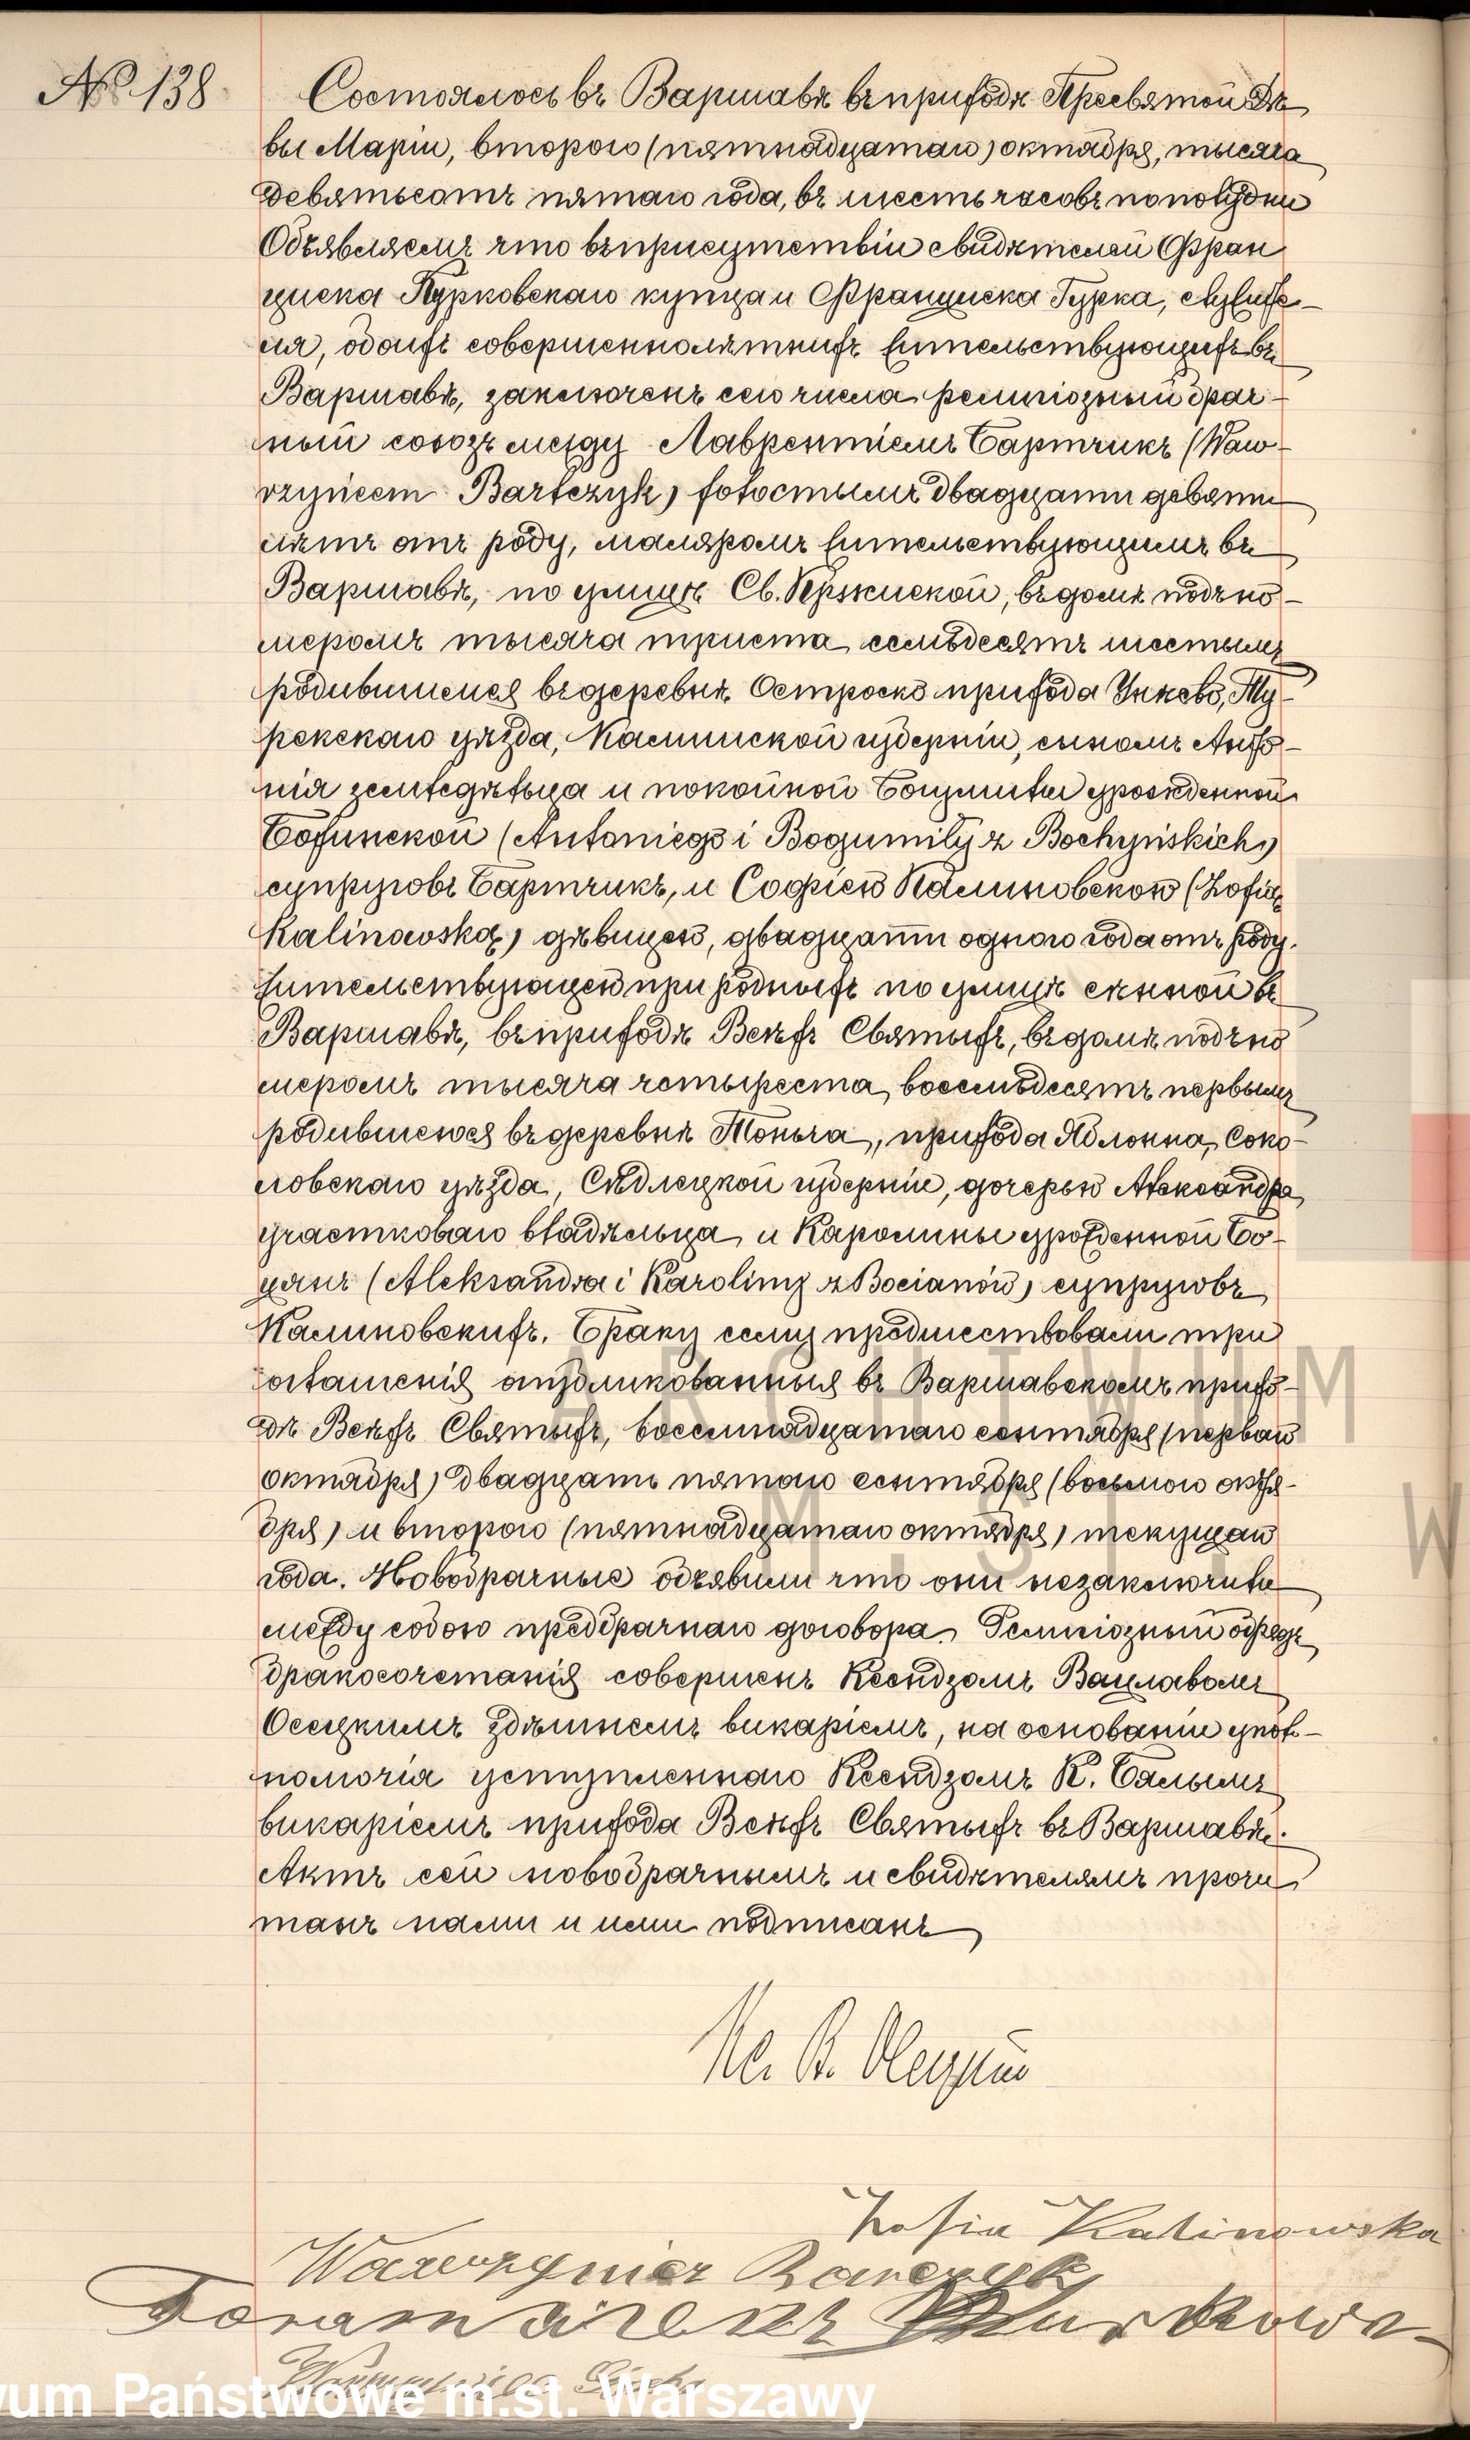 № 138.
Состоялось въ Варшавѣ въ приходѣ Пресвятой Дѣ
вы Маріи, второго (пятнадцатаго) октября, тысяча
девятьсотъ пятаго года, въ шесть часовъ пополудни
Объявляемъ что въ присутствіи свидѣтелей Фран
циска Пурковскаго купца и Франциска Гурка, служите-
ля, обоихъ совершеннолѣтнихъ жительствующихъ въ
Варшавѣ, заключенъ сего числа религіозный брач-
ный союзъ между Лаврентіемъ Бартчикъ (Waw-
rzyńcem Bartczyk) холостымъ двадцати девяти
лѣтъ отъ роду, маляромъ жительствующимъ въ
Варшавѣ, по улицѣ Св. , въ домѣ подъ но-
меромъ тысяча триста семьдесятъ шестымъ
родившемся въ деревнѣ прихода Унково, Ту-
рекскаго уѣзда, Калишской губерніи, сыномъ Анто-
нія земледѣльца и покойной Богумилы урожденной
Бохинской (Antoniego i Bogumiły z Bochyńskich)
супруговъ Бартчикъ, и Софіею Калиновскою (Zofią
Kalinowską) дѣвицею, двадцати одного года отъ роду.
жительствующею при родныхъ по улицѣ сѣнной въ
Варшавѣ, въ приходѣ Всѣхъ Святыхъ, въ домѣ подъ но
меромъ тысяча четыреста восемьдесятъ первымъ
родившеюся въ деревнѣ Тоньча, прихода Яблонна, Соко-
ловскаго уѣзда, Сѣдлецкой губерніи, дочерью Александра
участковаго владѣльца и Каролины урожденной Бо-
цянъ (Aleksandra i Karoliny z Bocianów) супруговъ
Калиновскихъ. Браку сему предшествовали три
оглашенія опубликованныя въ Варшавскомъ прихо-
дѣ Всѣхъ Святыхъ, восемнадцатаго сентября (перваго
октября) двадцать пятаго сентября (восьмого октя-
бря) и второго (пятнадцатаго октября) текущаго
года. Новобрачные объявили что они незаключили
между собою предбрачнаго договора. Религіозный обрядъ
бракосочетанія совершенъ Ксендзомъ Вацлавомъ
Осецкимъ здѣшнемъ викаріемъ, на основаніи упол-
номочія уступленнаго Ксендзомъ К. Балымъ
викаріемъ прихода Всѣхъ Святыхъ въ Варшавѣ.
Актъ сей новобрачнымъ и свидѣтелямъ прочи
танъ нами и ими подписанъ
Кс. В. Осецкій
Zofia Kalinowska
Wawrzyniec Barczyk
ARCHIWUM
M. ST. W
wum Państwowe m.st. Warszawy